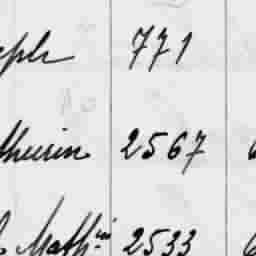 eph 771
thurin 2567
Math.in 2533